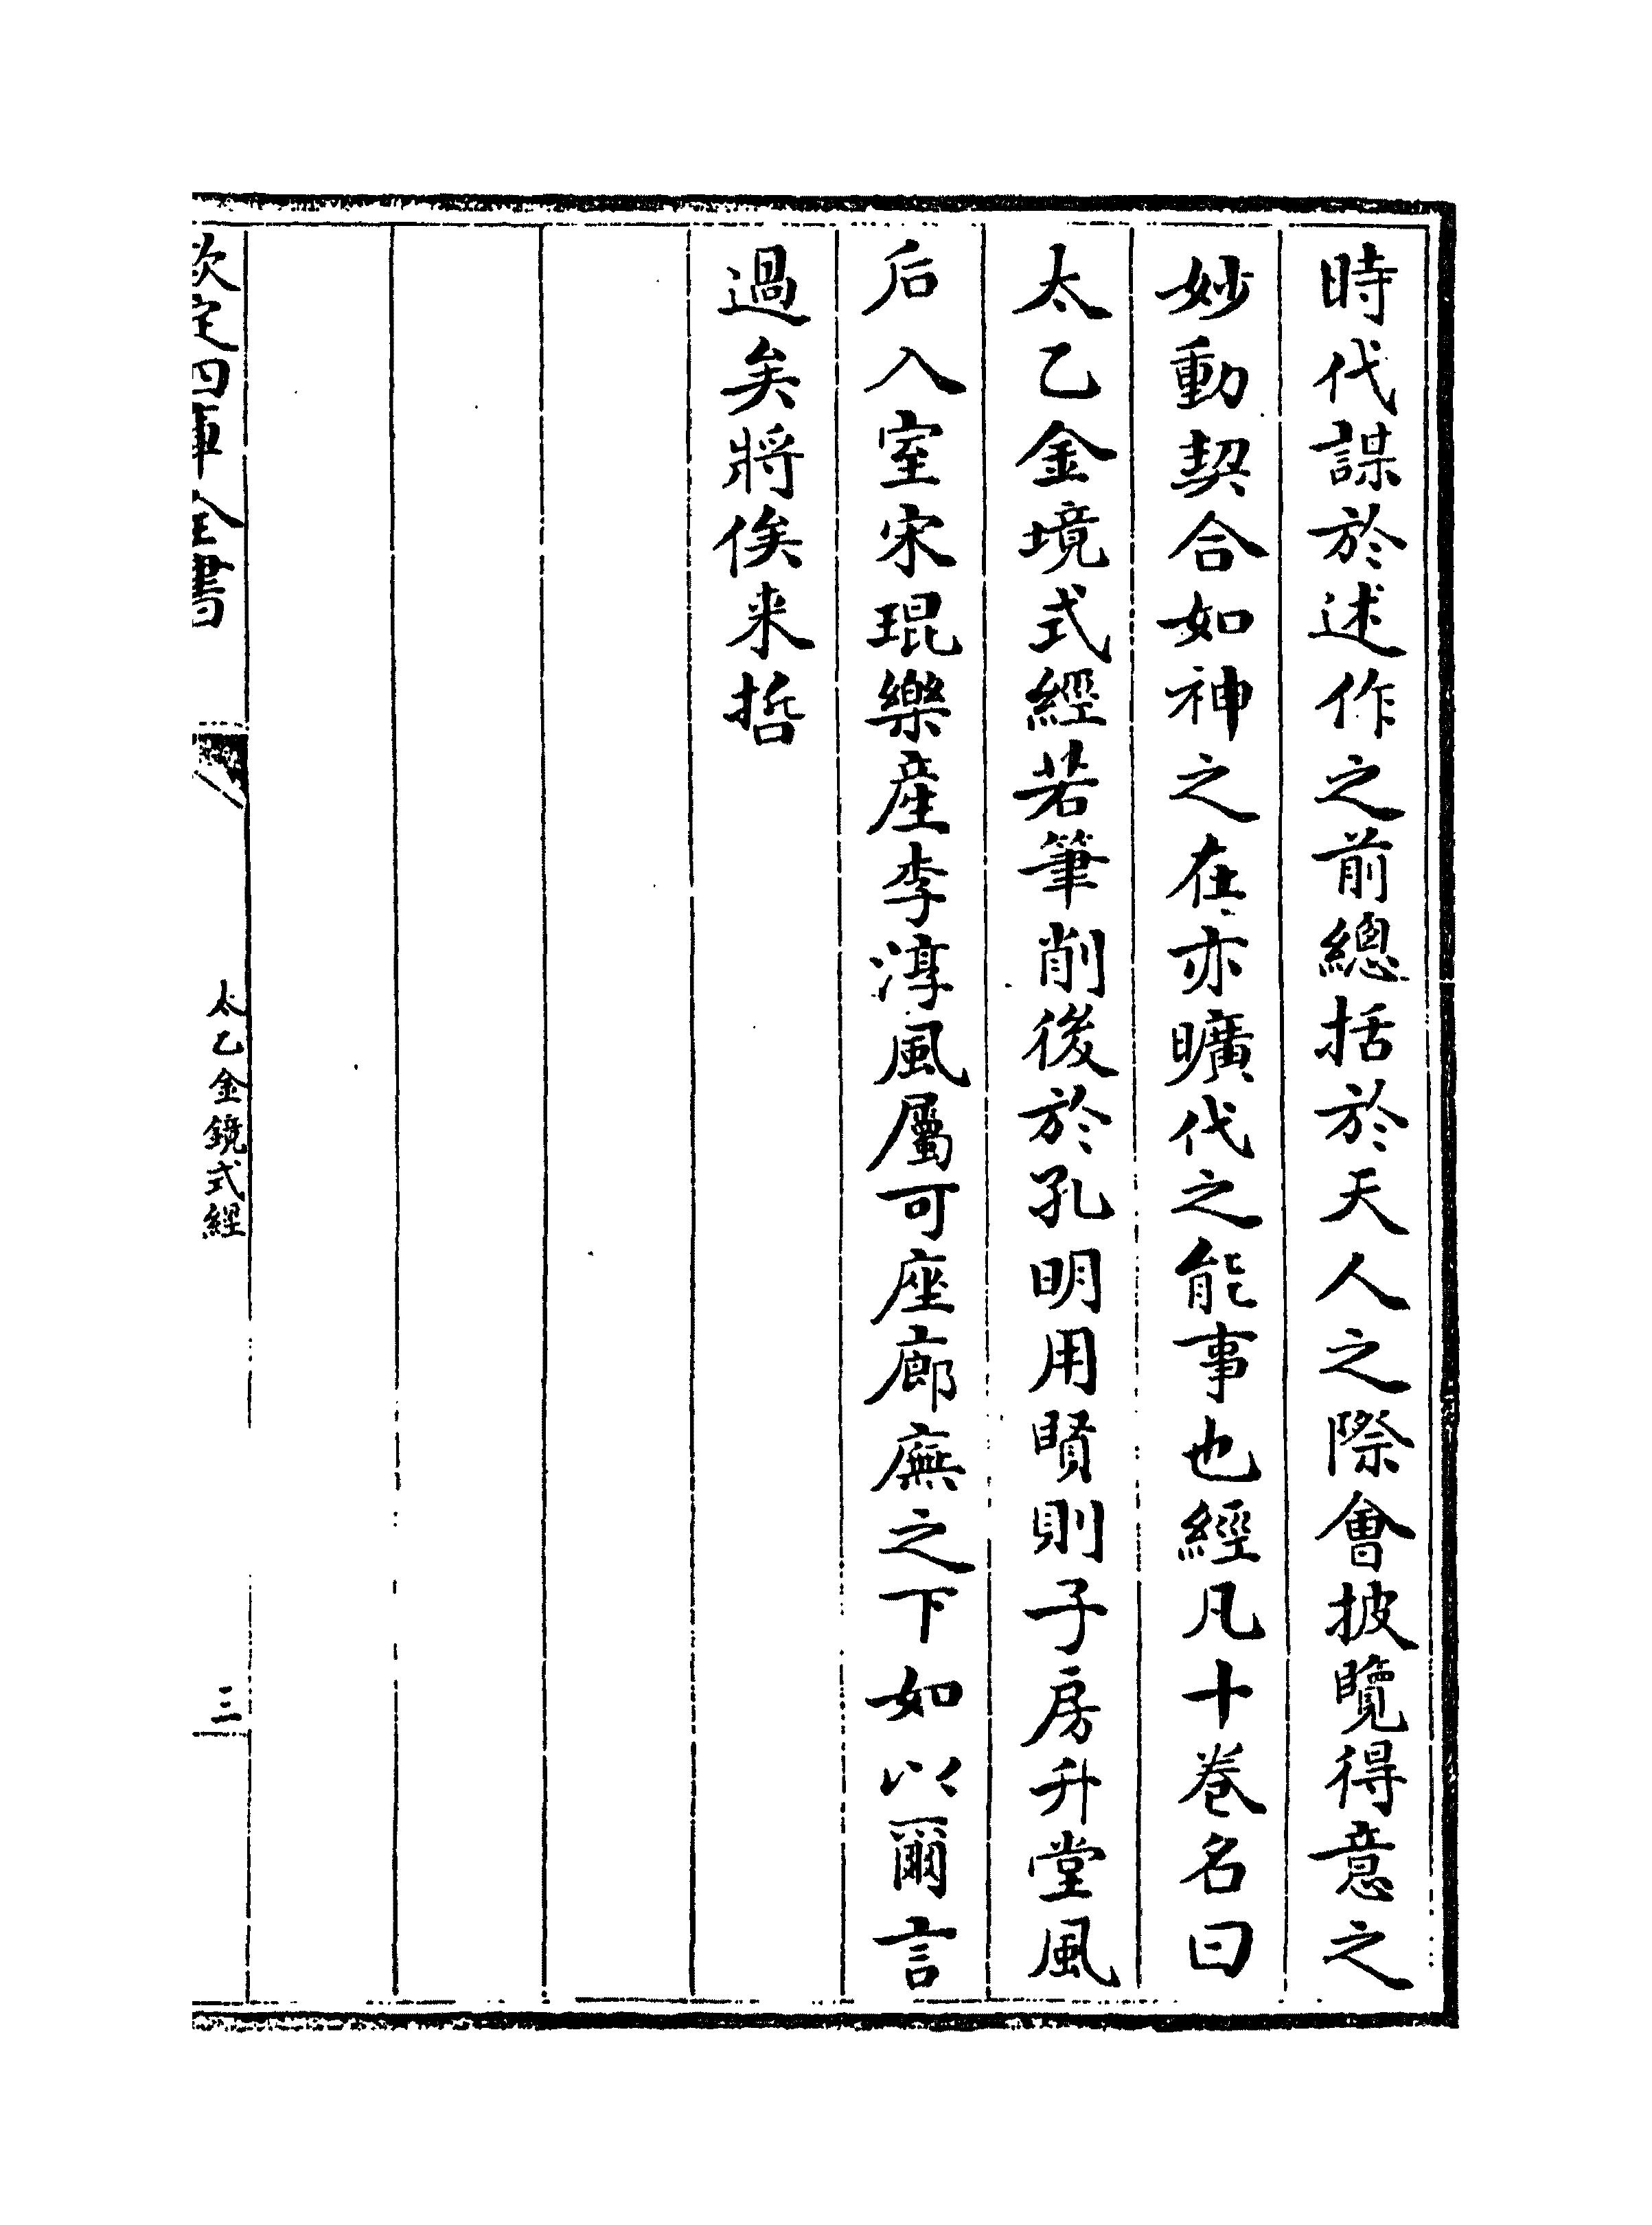 時代謀於述作之前總括於天人之際會披覽得意之
妙動契合如神之在亦曠代之能事也經凡十卷名曰
太乙金境式經若筆削後於孔明用賢則子房升堂風
后入室宋琨樂産李淳風屬可座廊廡之下如以爾言
過矣將俟来哲
欽定四庫全書
太乙金鏡式經
三